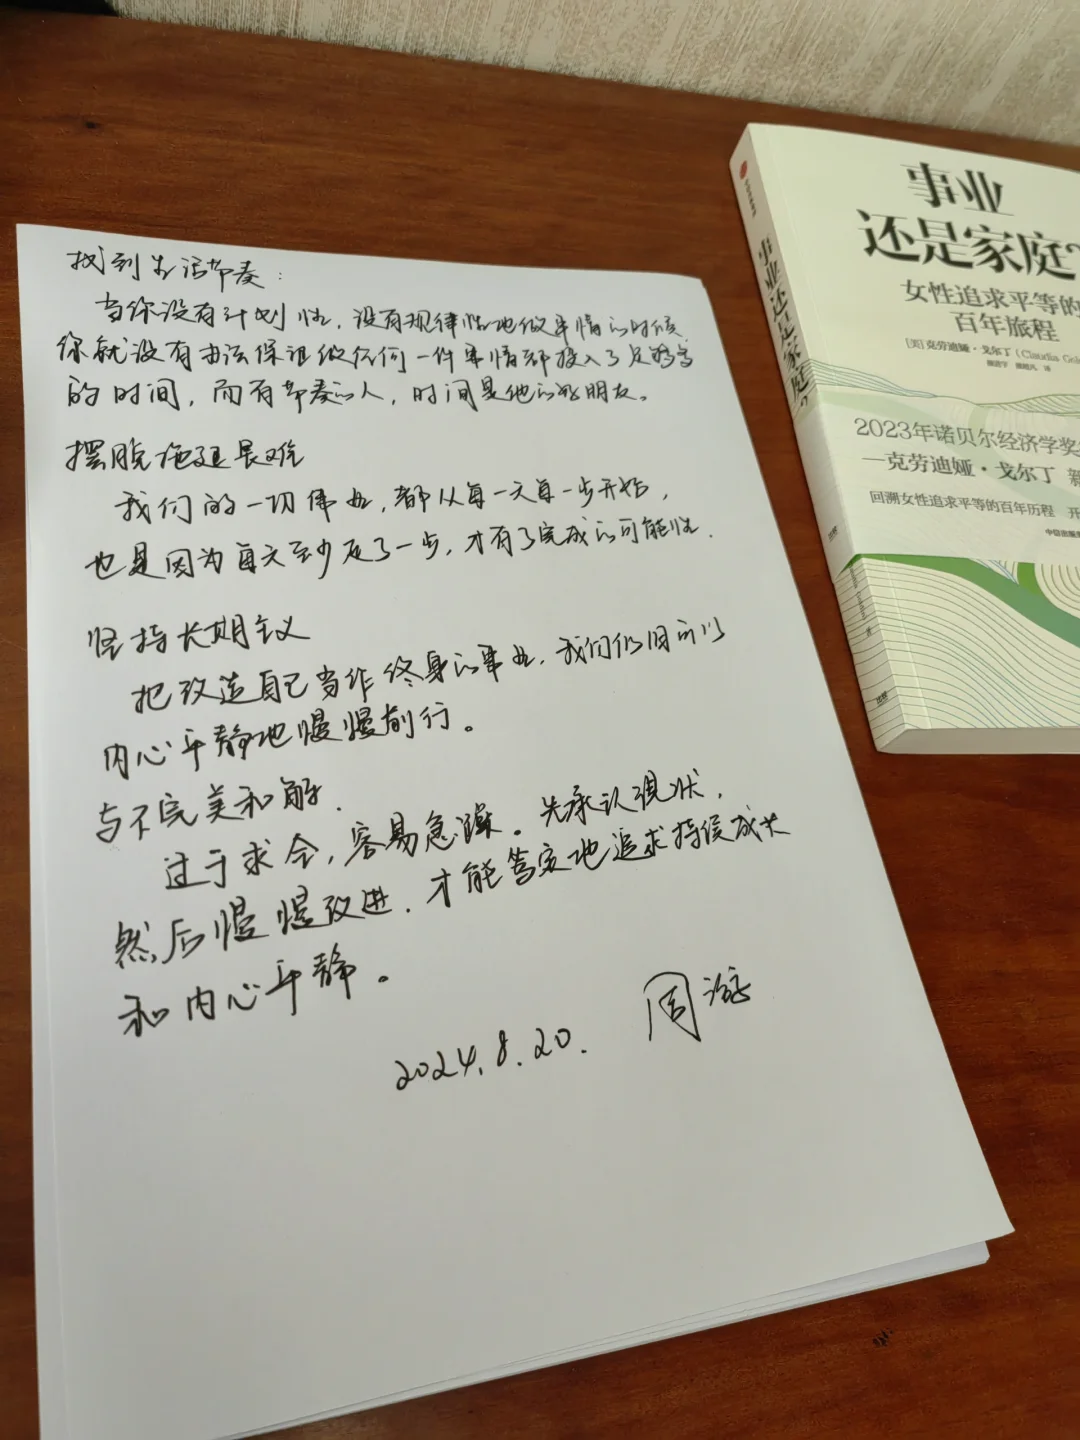 找到生活节奏:
当你没有计划性,没有规律性地做事情的时候
你就没有办法保证做任何一件事情都投入了足够多
的时间,而有节奏的人,时间是他的好朋友。
摆脱拖延最难
我们的一切伟业,都从每一天每一步开始,
也是因为每天至少走了一步,才有了完成的可能性.
坚持长期主义
把改造自己当作终身的事业,我们仍旧可以
内心平静地慢慢前行。
与不完美和解.
过于求全,容易急躁。先承认现状,
然后慢慢改进,才能笃定地追求持续成长
和内心平静。
2024.8.20. 周
事业
还是家庭?
女性追求平等的
百年旅程
[美]克劳迪娅·戈尔丁(Claudia
2023年诺贝尔经济学奖
—克劳迪娅·戈尔丁 新
回溯女性追求平等的百年历程 开
中信出版
事业还是家庭?